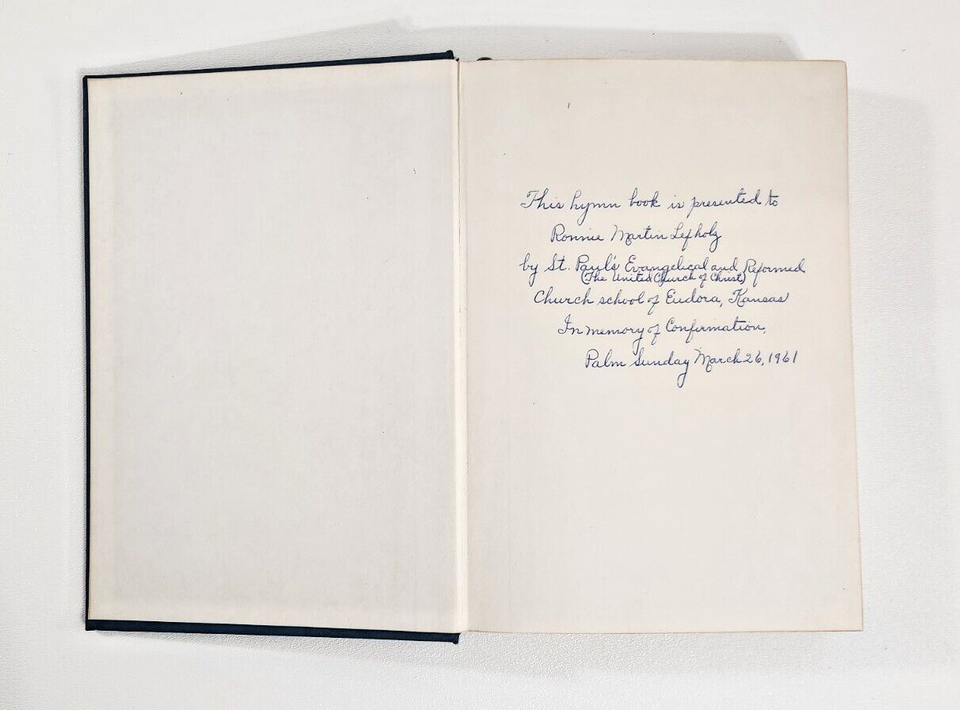 This hymn book is presented to
Ronnie Martin Lefholz
by St. Paul's Evangelical and Reformed
(The United Church of Christ)
Church school of Eudora, Kansas
In memory of Confirmation,
Palm Sunday March 26, 1961